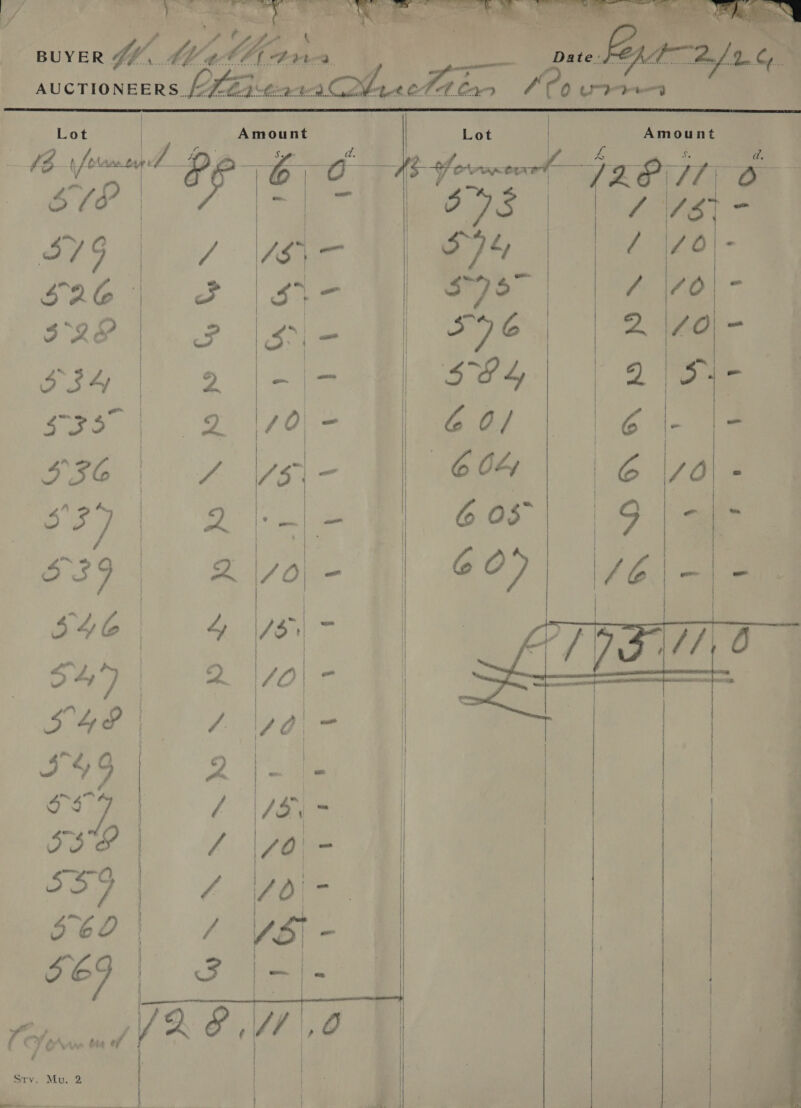 BUYER W. Wellkins Date Sept 2/24
AUCTIONEERS Stevens Auction Rooms
Lot Amount
£ s. d.
B forward 88 6 0
518 1 - -
519 1 15 -
526 3 5 -
528 3 5 -
534 2 - -
535 2 10 -
536 1 15 -
537 2 - -
539 2 10 -
546 4 15 -
547 2 10 -
548 1 10 -
549 2 - -
557 1 15 -
558 1 10 -
559 1 10 -
560 1 15 -
569 3 - -
C forward 128 . 11 . 0
Stv. Mu. 2
Lot Amount
£ s. d.
B forward 128 11 0
573 1 15 -
574 1 10 -
575 1 10 -
576 2 10 -
584 2 5 -
601 6 - -
604 6 10 -
605 9 - -
607 16 - -
£175 . 11 . 0